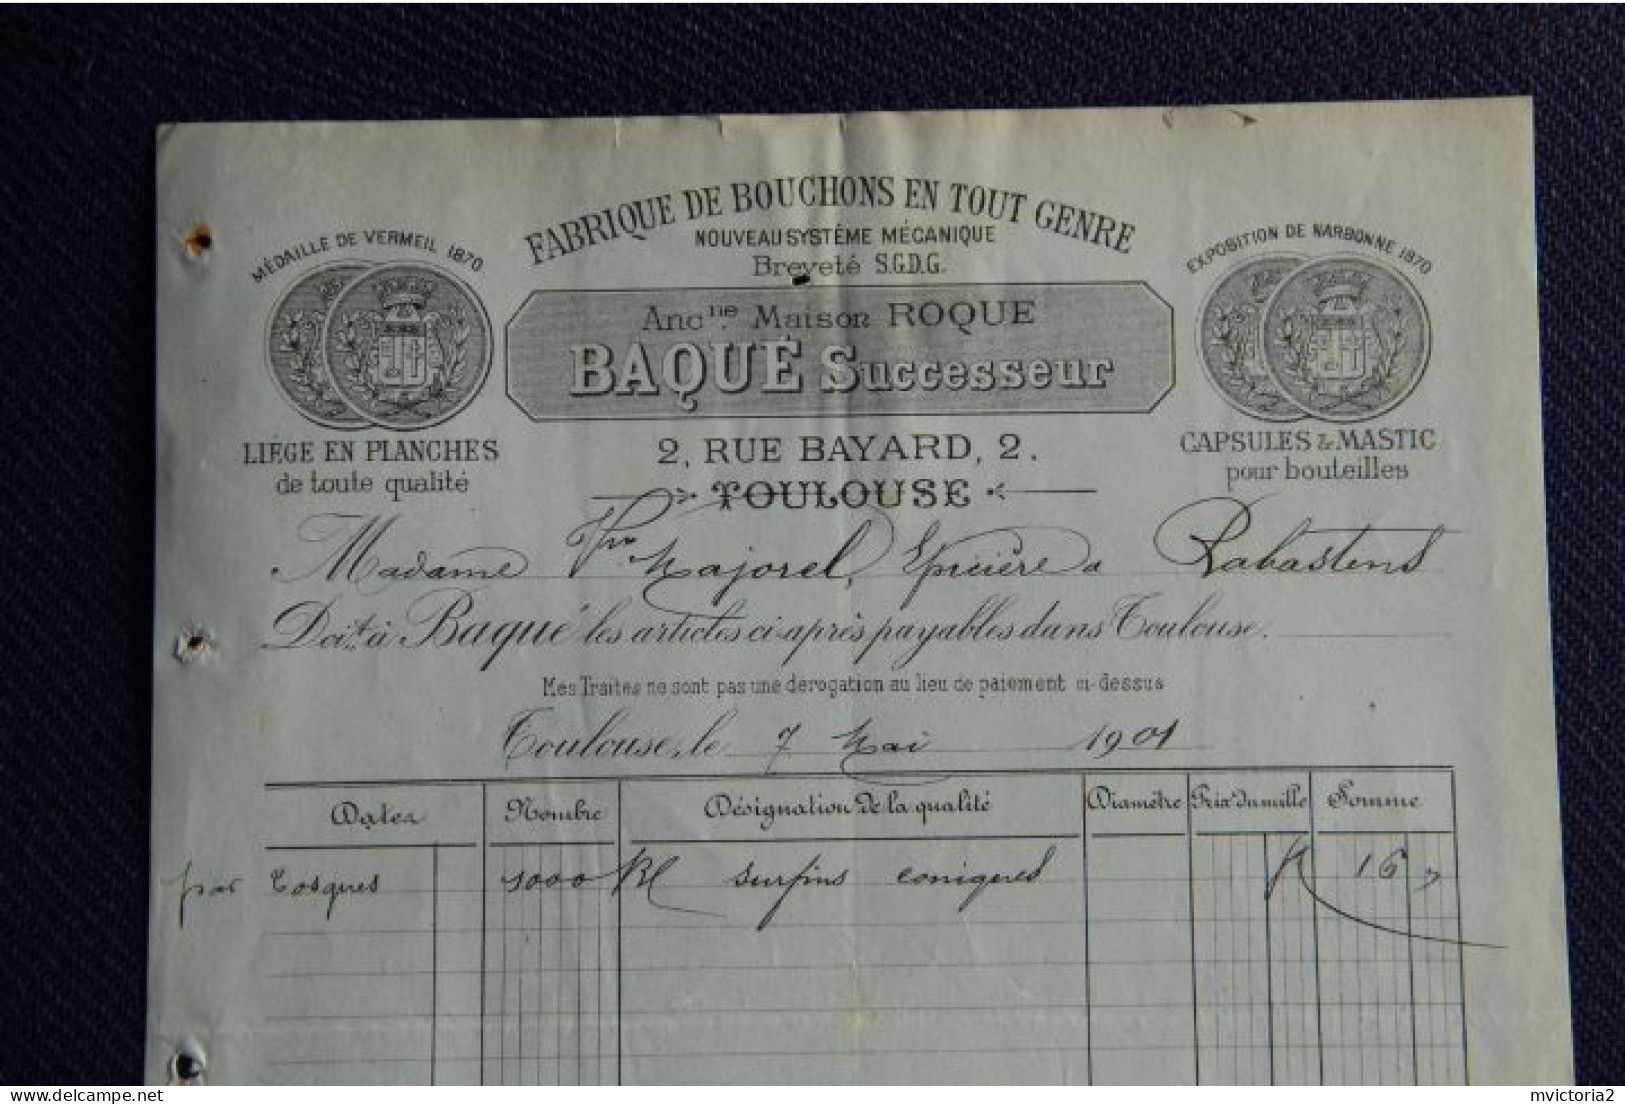 FABRIQUE DE BOUCHONS EN TOUT GENRE
NOUVEAU SYSTÈME MÉCANIQUE
Breveté S.G.D.G.
MÉDAILLE DE VERMEIL 1870
EXPOSITION DE NARBONNE 1870
Anc.ne Maison ROQUE
BAQUÉ Successeur
LIÉGE EN PLANCHES
de toute qualité
2, RUE BAYARD, 2.
TOULOUSE
CAPSULES & MASTIC
pour bouteilles
Madame Vve Majorel, Epicière a Rabastens
Doit à Baqué les articles ci-après payables dans Toulouse.
Mes Traites ne sont pas une dérogation au lieu de paiement ci-dessus
Toulouse, le 7 Mai 1901
Dates Nombre Désignation de la qualité Diamètre Prix du mille Somme
par Cosques 1000 surfins coniques 16 "
delcampe.net
mvictoria2